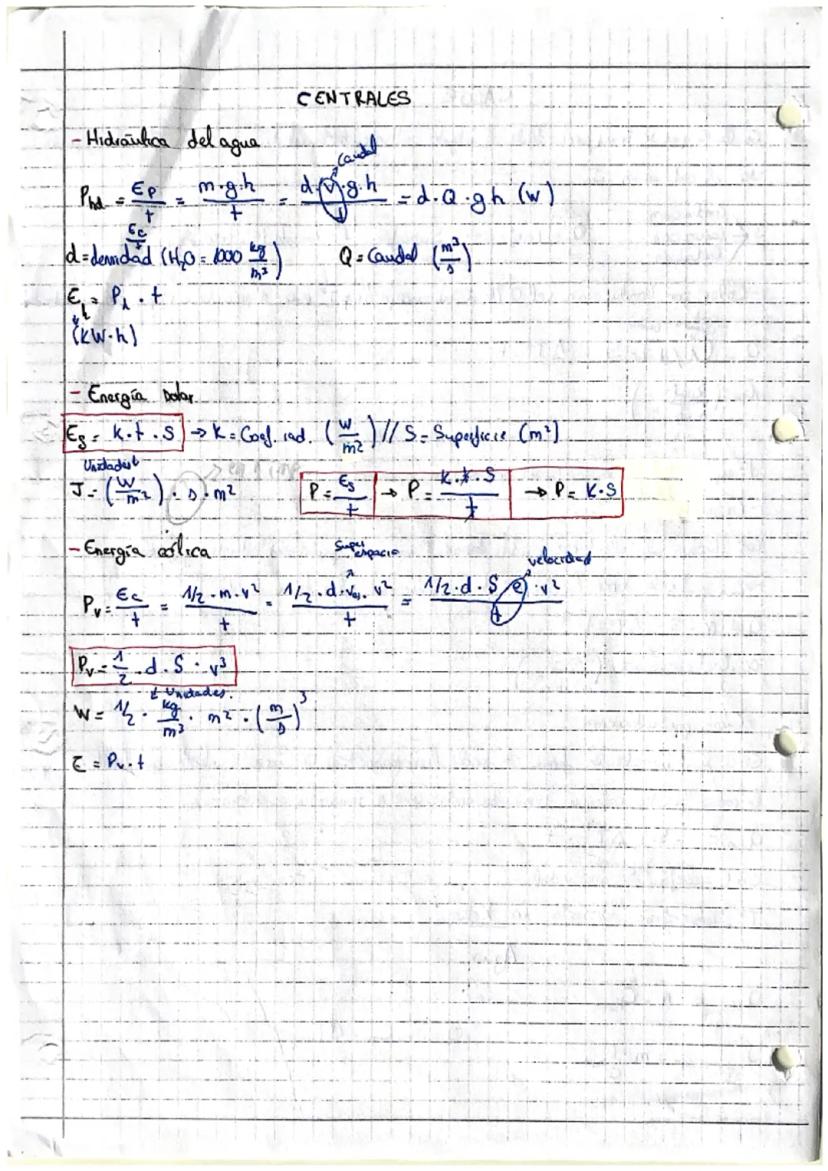 CENTRALES
- Hidráulica del agua
caudal
P_hd = Ep/t = m·g·h/t = d·V·g·h/t = d·Q·gh (W)
d = densidad (H₂O = 1000 kg/m³) Q = Caudal (m³/s)
E_h = P_h · t
(kW·h)
- Energía solar
E_s = K·t·S → K = Coef. rad. (W/m²) // S = Superficie (m²)
Unidades
J = (W/m²) · s · m²
P = E_s/t → P = K·t·S/t → P = K·S
- Energía eólica
Super espacio
velocidad
P_v = Ec/t = 1/2·m·v²/t = 1/2·d·Vol·v²/t = 1/2·d·S·e·v²/t
P_v = 1/2·d·S·v³
Unidades.
W = 1/2 · kg/m³ · m² · (m/s)³
E = P_v·t